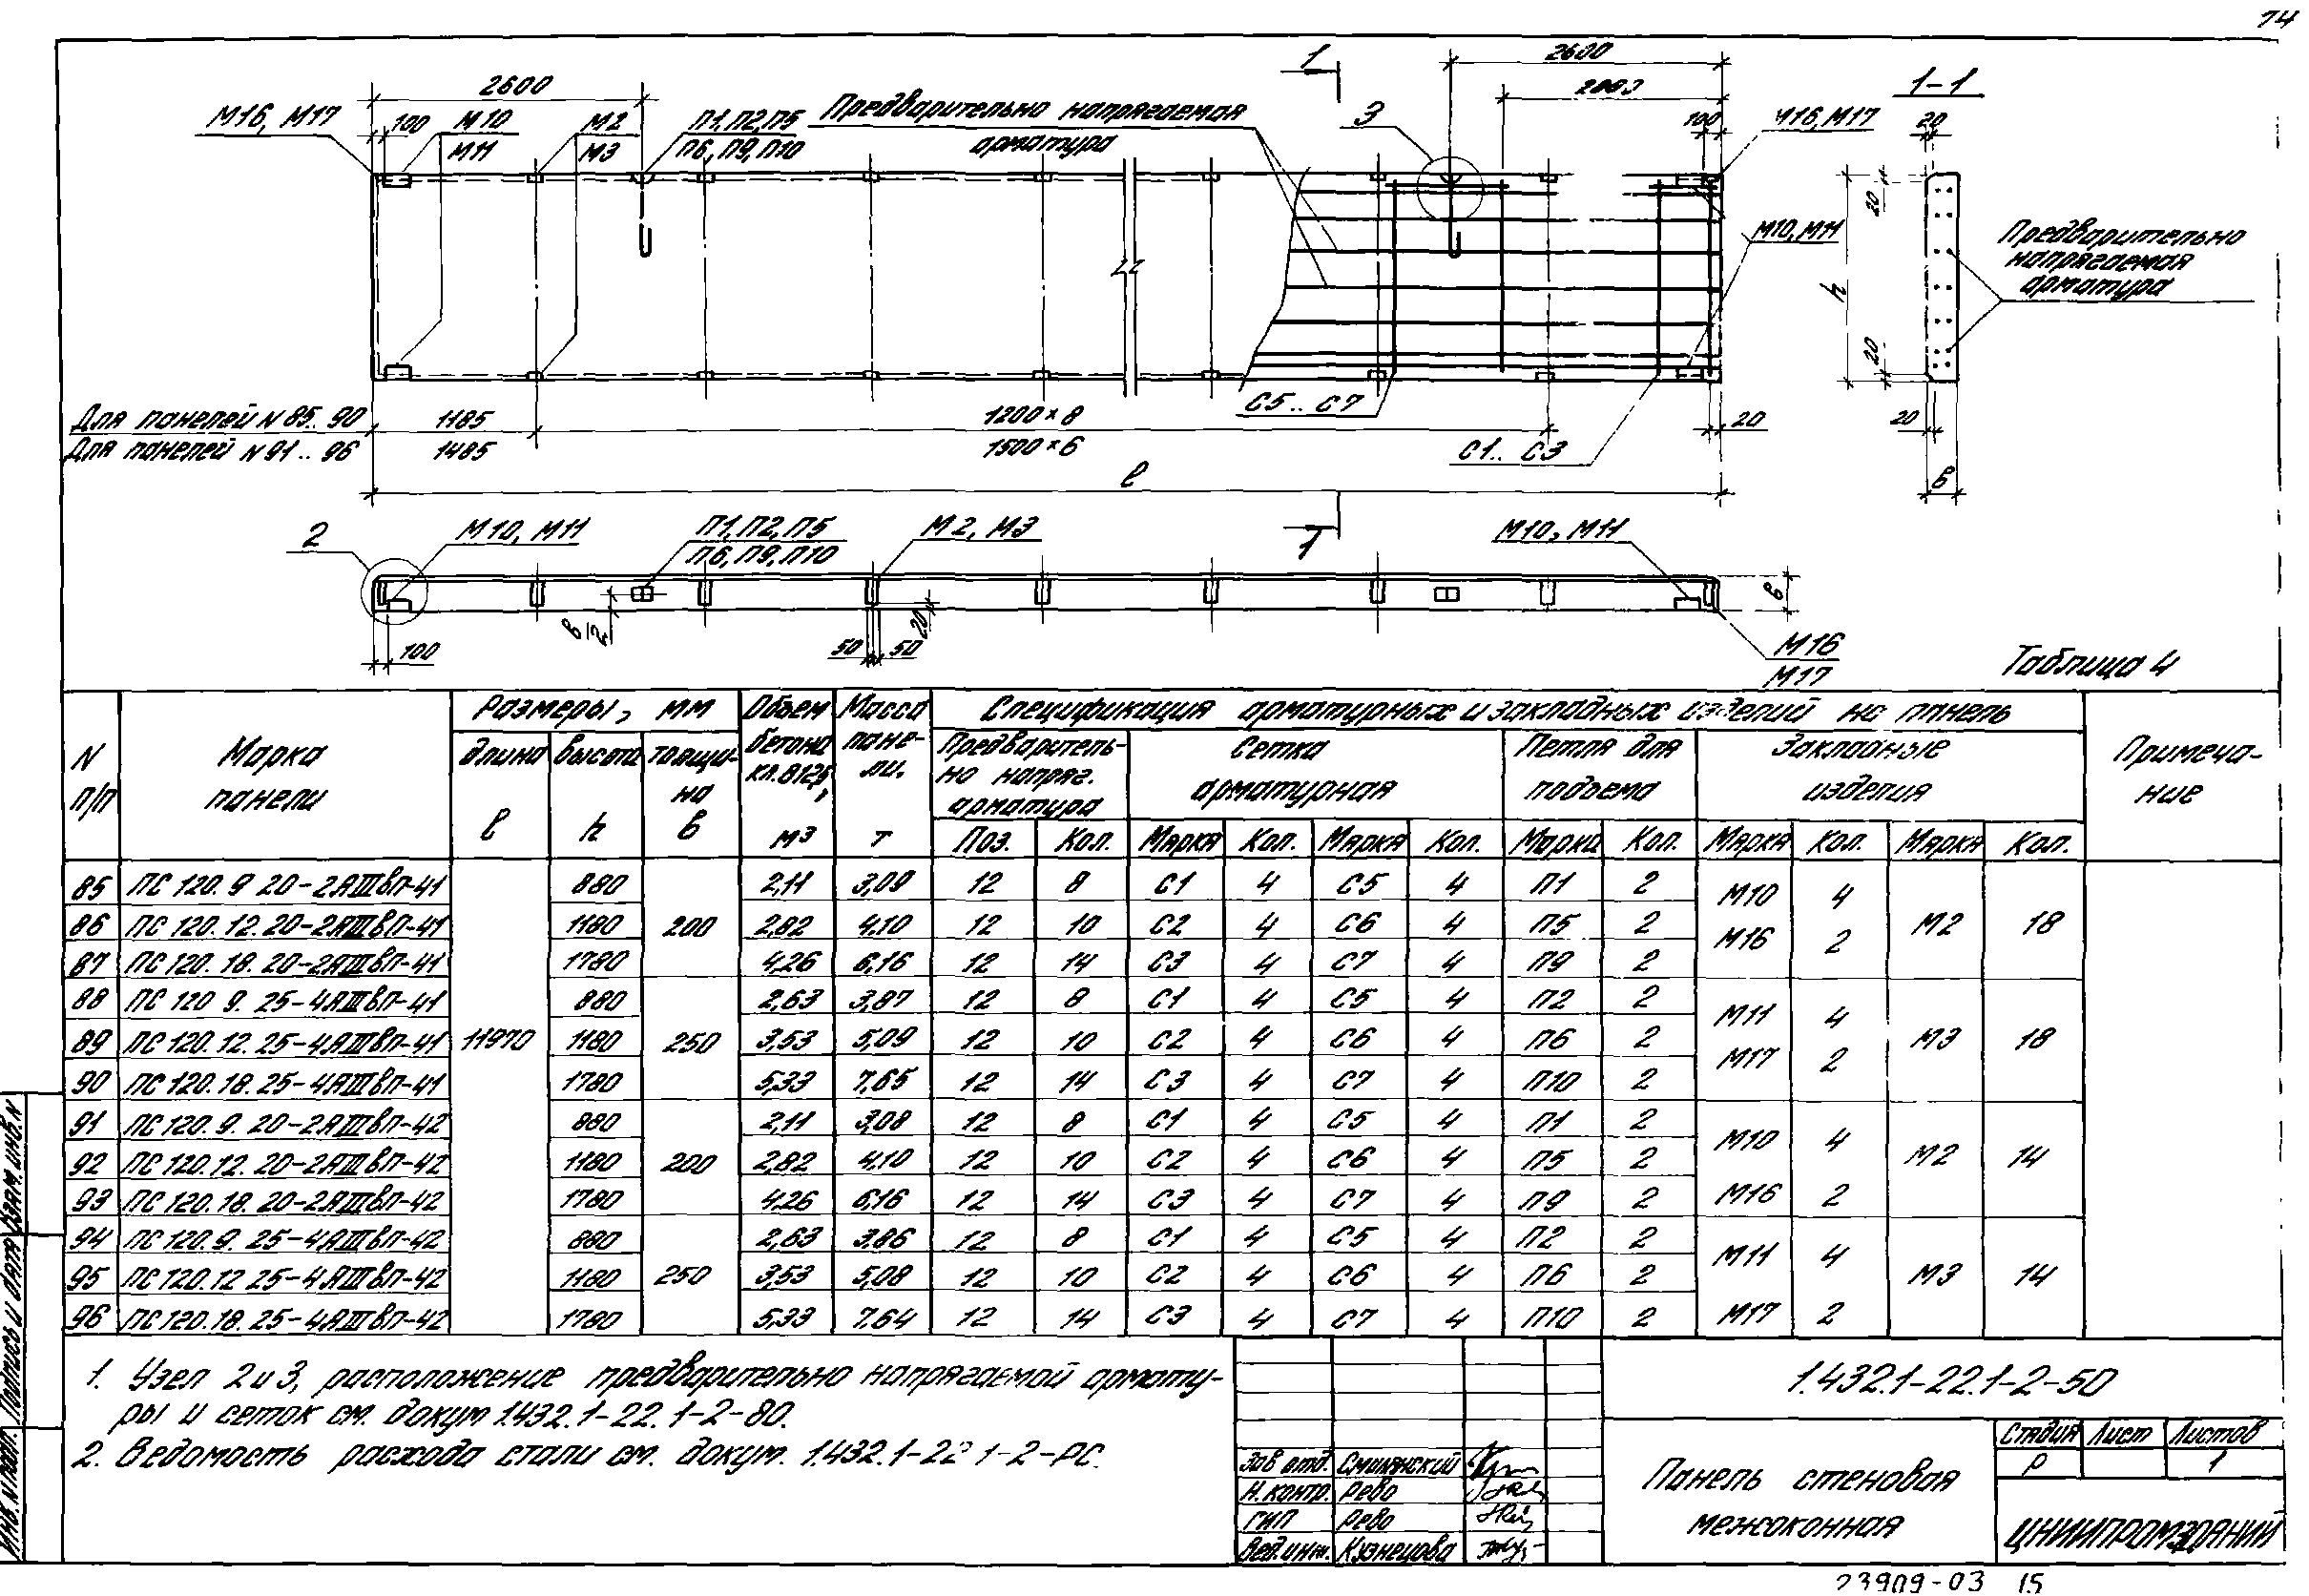 74
2600
2600
1
1-1
М16, М17
100
М10
М11
М2
М3
П1, П2, П5
П6, П9, П10
Предварительно напрягаемая
арматура
3
100
М16, М17
20
20
М10, М11
h
Предварительно
напрягаемая
арматура
20
С5.. С7
20
20
Для панелей N 85.. 90
1185
1200×8
Для панелей N 91.. 96
1485
1500×6
С1.. С3
ℓ
в
2
М10, М11
П1, П2, П5
П6, П9, П10
М2, М3
1
М10, М11
в/2
100
50
50
20
в
М16
М17
Таблица 4
N п/п
Марка панели
Размеры, мм
длина ℓ
высота h
толщина в
Объем бетона кл. В12,5, м³
Масса панели, т
Спецификация арматурных и закладных изделий на панель
Предварительно напряг. арматура
Сетка арматурная
Петля для подъема
Закладные изделия
Примечание
Поз. Кол. Марка Кол. Марка Кол. Марка Кол. Марка Кол. Марка Кол.
85 ПС 120. 9 20-2АIIIвП-41 880 2,11 3,09 12 8 С1 4 С5 4 П1 2
86 ПС 120. 12. 20-2АIIIвП-41 1180 200 2,82 4,10 12 10 С2 4 С6 4 П5 2
М10 4
М16 2
М2 18
87 ПС 120. 18. 20-2АIIIвП-41 1780 4,26 6,16 12 14 С3 4 С7 4 П9 2
88 ПС 120 9. 25-4АIIIвП-41 880 2,63 3,87 12 8 С1 4 С5 4 П2 2
89 ПС 120. 12. 25-4АIIIвП-41 11970 1180 250 3,53 5,09 12 10 С2 4 С6 4 П6 2
М11 4
М17 2
М3 18
90 ПС 120. 18. 25-4АIIIвП-41 1780 5,33 7,65 12 14 С3 4 С7 4 П10 2
91 ПС 120. 9. 20-2АIIIвП-42 880 2,11 3,08 12 8 С1 4 С5 4 П1 2
92 ПС 120. 12. 20-2АIIIвП-42 1180 200 2,82 4,10 12 10 С2 4 С6 4 П5 2
М10 4
М16 2
М2 14
93 ПС 120. 18. 20-2АIIIвП-42 1780 4,26 6,16 12 14 С3 4 С7 4 П9 2
94 ПС 120. 9. 25-4АIIIвП-42 880 2,63 3,86 12 8 С1 4 С5 4 П2 2
95 ПС 120. 12 25-4АIIIвП-42 1180 250 3,53 5,08 12 10 С2 4 С6 4 П6 2
М11 4
М17 2
М3 14
96 ПС 120. 18. 25-4АIIIвП-42 1780 5,33 7,64 12 14 С3 4 С7 4 П10 2
1. Узел 2 и 3, расположение предварительно напрягаемой армату-
ры и сеток см. докум 1.432.1-22. 1-2-80.
2. Ведомость расхода стали см. докум. 1.432.1-22 1-2-РС.
Инв. N подл. Подпись и дата Взам. инв. N
Зав отд. Смилянский
Н. контр. Рево
ГИП Рево
Вед. инж. Кузнецова
1.432.1-22.1-2-50
Панель стеновая
межоконная
Стадия Лист Листов
Р 1
ЦНИИПРОМЗДАНИЙ
23909-03 15